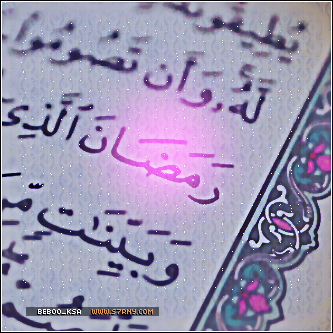 يُطِيقُونَهُ
لَّهُ وَأَن تَصُومُوا
رَمَضَانَ الَّذِي
وَبَيِّنَٰتٍ مِّنَ
BEBOO_KSA WWW.S7RNY.COM